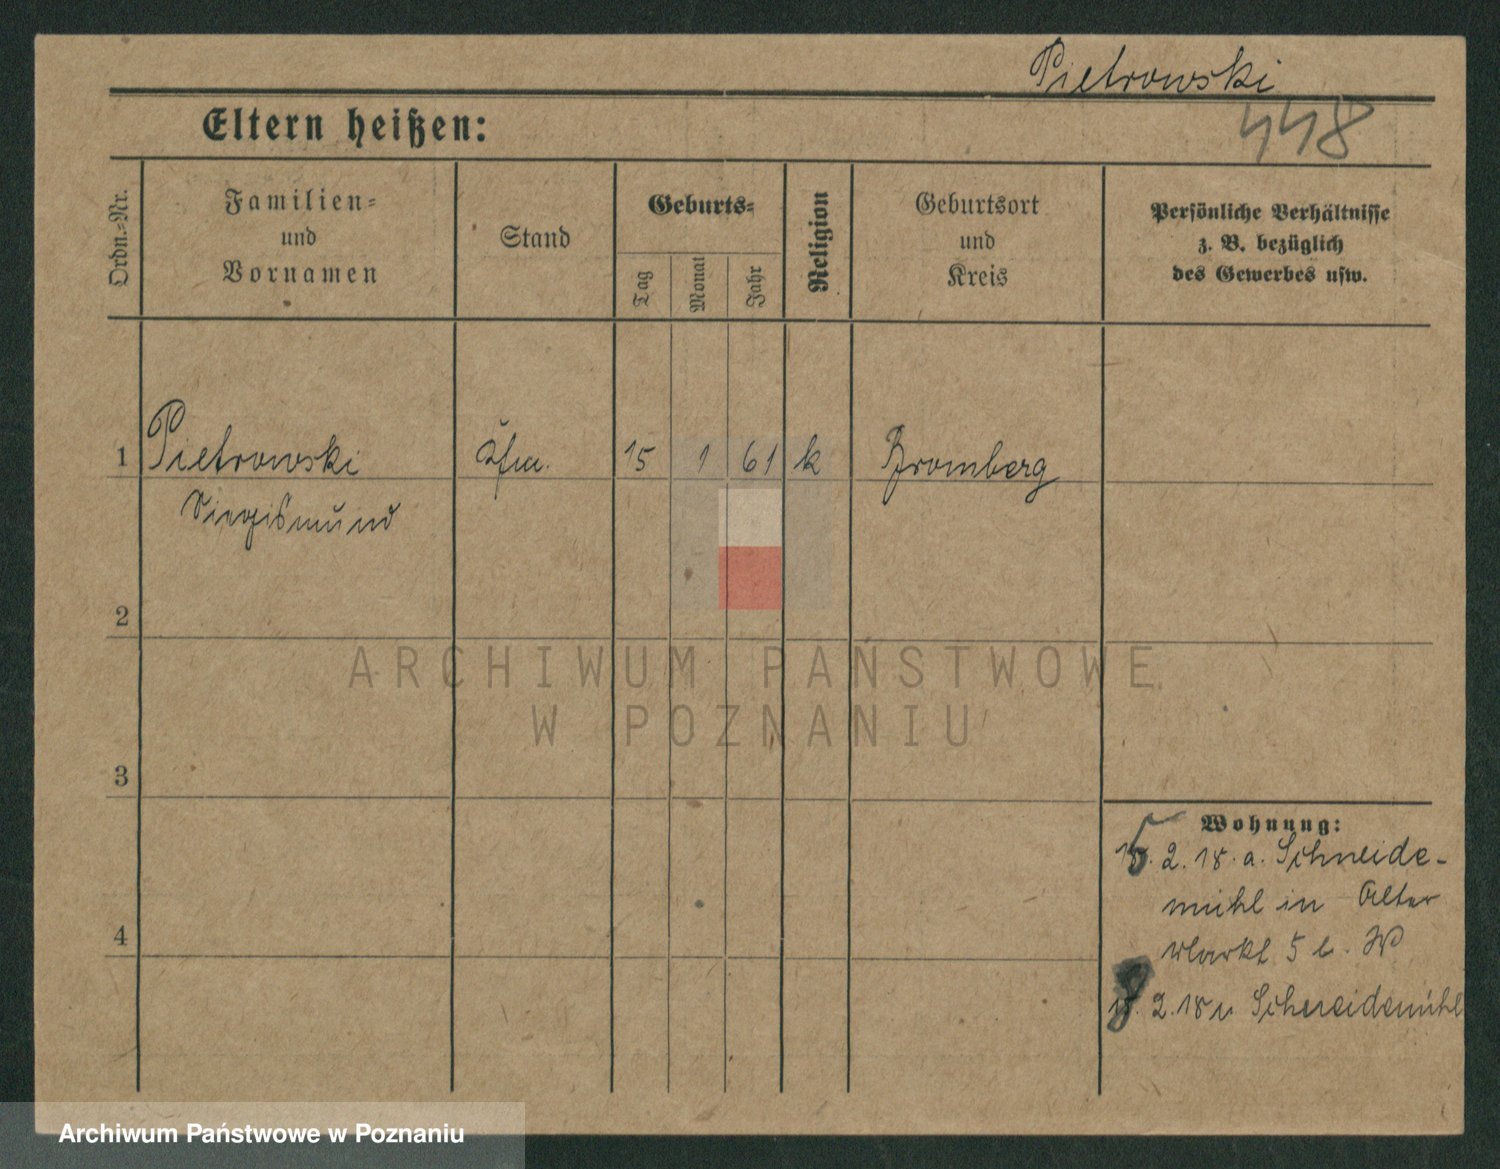 Pietrowski
448
Eltern heißen:
Ordn.-Nr.
Familien-
und
Vornamen
Stand
Geburts-
Tag
Monat
Jahr
Religion
Geburtsort
und
Kreis
Persönliche Verhältnisse
z. B. bezüglich
des Gewerbes usw.
1 Pietrowski Kfm. 15 1 61 k Bromberg
Siegismund
2
3
4
Wohnung:
2. 18. a. Schneide-
mühl in Alter
Markt 5 b.
2. 18 n Schneidemühl
ARCHIWUM PAŃSTWOWE
W POZNANIU
Archiwum Państwowe w Poznaniu